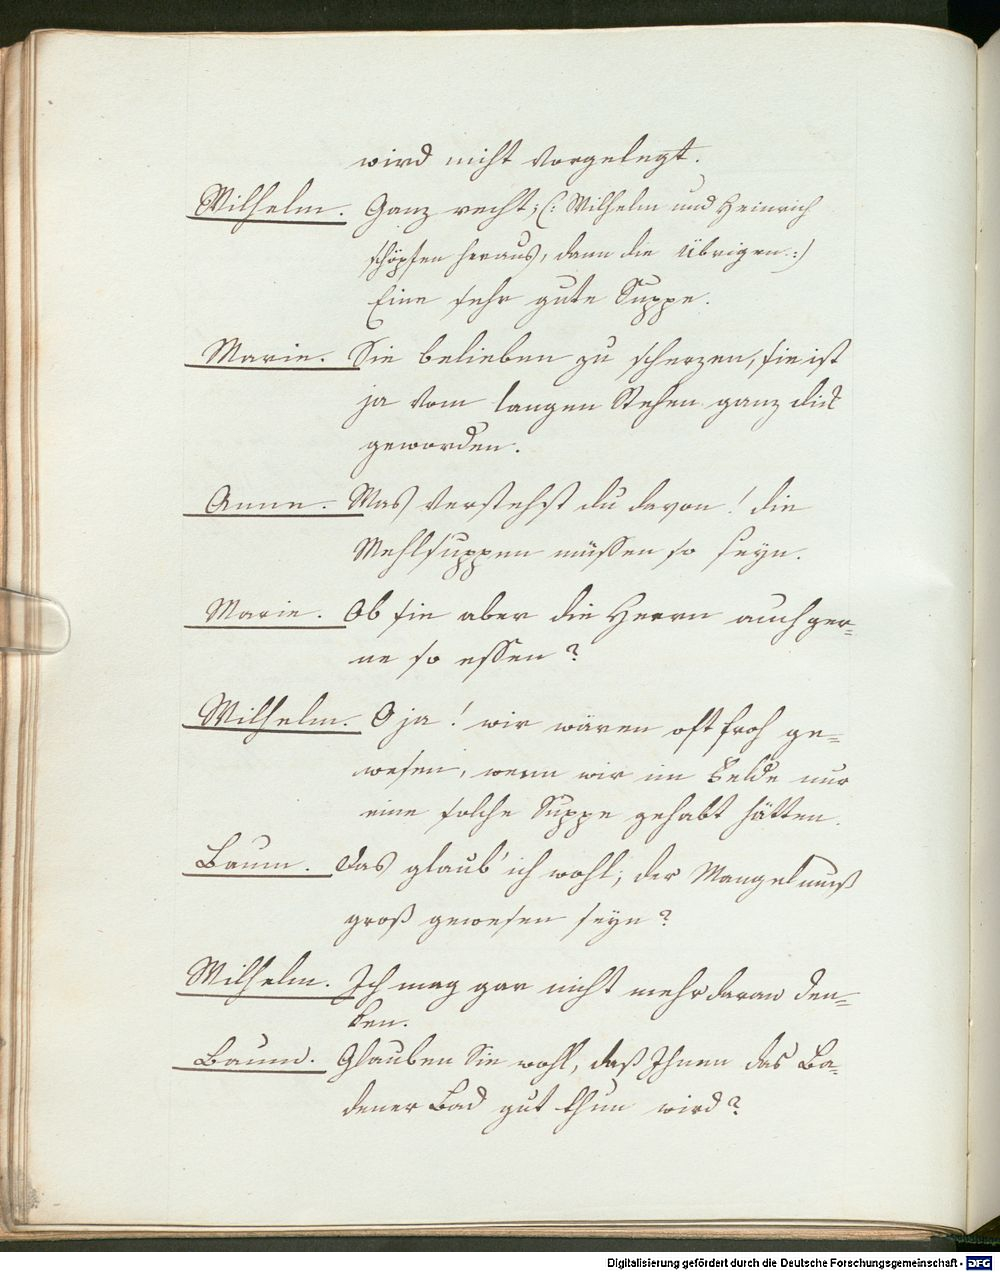 wird nicht vorgelegt.
Wilhelm. Ganz recht; (: Wilhelm und Heinrich
schöpfen heraus, dann die Übrigen. :)
Eine sehr gute Suppe.
Marie. Sie belieben zu scherzen, sie ist
ja vom langen Stehen ganz dick
geworden.
Anne. Was verstehst du davon! die
Mehlsuppen müssen so seyn.
Marie. Ob sie aber die Herrn auch ger=
ne so essen?
Wilhelm. O ja! wir wären oft froh ge=
wesen, wenn wir im Felde nur
eine solche Suppe gehabt hätten.
Baum. Das glaub' ich wohl; der Mangel muß
groß gewesen seyn?
Wilhelm. Ich mag gar nicht mehr daran den=
ken.
Baum. Glauben Sie wohl, daß Ihnen das Ba=
dener Bad gut thun wird?
Digitalisierung gefördert durch die Deutsche Forschungsgemeinschaft - DFG